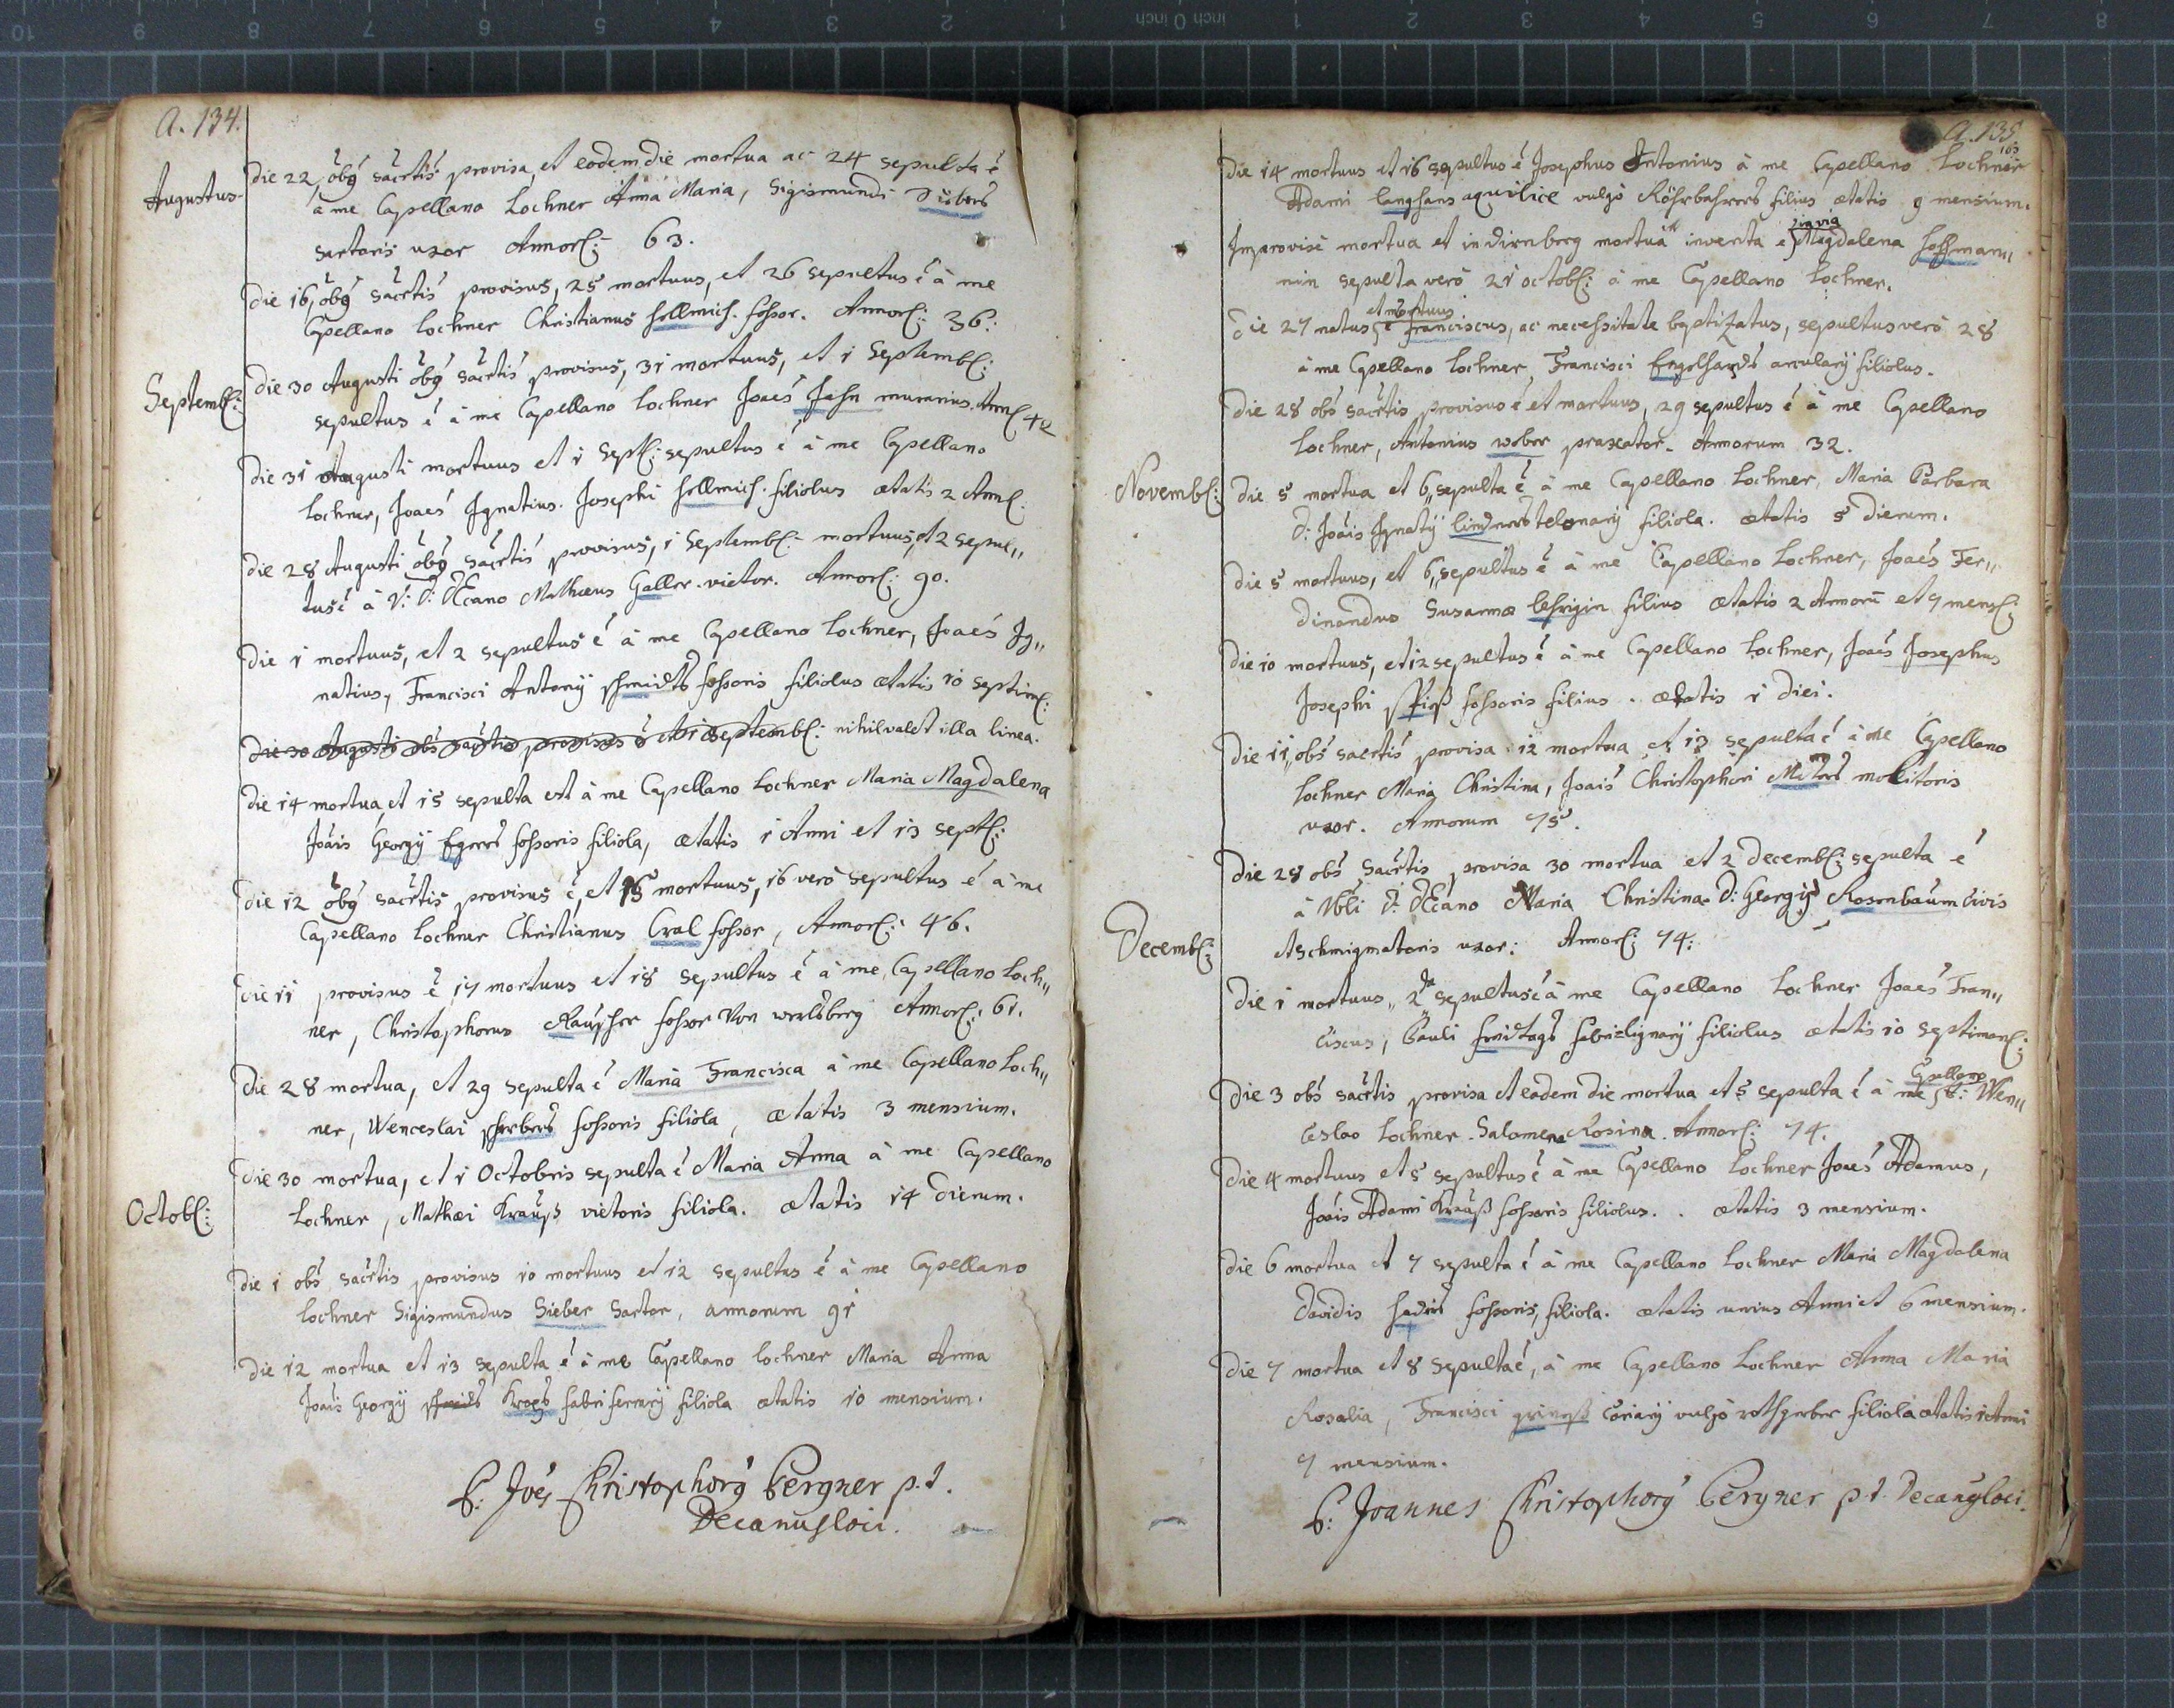 A. 134.
Augustus.
Die 22 obg sacrtis provisa, et eodem die mortua ac 24 sepulta é
à me Capellano Lochner Anna Maria, Sigismundi Siebers
sartoris uxor Annor: 63.
Die 16, obg sacrtis provisus, 25 mortuus, et 26 sepultus é à me
Capellano Lochner Christianus Hellmich. fossor. Annor: 36:
Septemb:
Die 30 Augusti obg sacrtis provisus, 31 mortuus, et 1 Septemb:
sepultus é à me Capellano Lochner Joaes Jahn murarius. Ann: 42
Die 31 Augusti mortuus et 1 Sept: sepultus é à me Capellano
Lochner, Joaes Ignatius. Josephi Hellmich. filiolus ætatis 2 Ann:
Die 28 Augusti obg sacrtis provisus, 1 Septemb: mortuus, et 2 sepul,,
tus é à V: D: DEcano Mathæus Galler. vietor. Annor: 90.
Die 1 mortuus, et 2 sepultus é à me Capellano Lochner, Joaes Ig,,
natius, Francisci Antonij Schmidts fossoris filiolus ætatis 10 septim:
Die 30 Augusti obs sacrtis provisus é et 1 Septemb: nihil valet illa linea.
Die 14 mortua, et 15 sepulta est à me Capellano Lochner Maria Magdalena
Joais Georgij Egerers fossoris filiola, ætatis 1 Anni et 13 sept:
Die 12 obg sacrtis provisus é, et 15 mortuus, 16 verò sepultus é à me
Capellano Lochner Christianus Cral fossor, Annor: 46.
Die 11 provisus é 17 mortuus et 18 sepultus é à me Capellano Loch,,
ner, Christophorus Rauscher fossor von Annor: 61.
Die 28 mortua, et 29 sepulta é Maria Francisca à me Capellano Loch,,
ner, Wenceslai fossoris filiola, ætatis 3 mensium.
Die 30 mortua, et 1 Octobris sepulta é Maria Anna à me Capellano
Octob:
Lochner, Mathæi Krauß vietoris filiola. ætatis 14 dierum.
Die 1 obs sacrtis provisus 10 mortuus et 12 sepultus é à me Capellano
Lochner Sigismundus Sieber Sartor, annorum 91
Die 12 mortua et 13 sepulta é à me Capellano Lochner Maria Anna
Joais Georgij fabri ferrarij filiola ætatis 10 mensium.
P: Joes Christophorg Bergner p.t.
Decanus loci.
A. 135.
163
Die 14 mortuus et 16 sepultus é Josephus Antonius à me Capellano Lochner
Adami Langhans aquilicæ vulgò Röhrbohrers filius ætatis 9 mensium.
Improvisè mortua et in dirnberg mortua inventa é in via Magdalena Hoffman,,
nin sepulta verò 21 octob: à me Capellano Lochner.
Die 27 natus et mortuus é Franciscus, ac necessitate baptizatus, sepultus verò 28
à me Capellano Lochner, Francisci Engelhardts arcularij filiolus.
Die 28 obs sacrtis provisus é et mortuus, 29 sepultus é à me Capellano
Lochner, Antonius weber praxator. Annorum 32.
Novemb:
Die 5 mortua et 6,, sepulta é à me Capellano Lochner, Maria Barbara
D: Joais Ignatij Lindners telonarij filiola. ætatis 5 dierum.
Die 5 mortuus, et 6,, sepultus é à me Capellano Lochner, Joaes Fer,,
dinandus Susannæ filius ætatis 2 Annorū et 7 mens:
Die 10 mortuus, et 12 sepultus é à me Capellano Lochner, Joaes Josephus
Josephi fossoris filius. ætatis 1 diei.
Die 11,, obs sacrtis provisa 12 mortua et 13 sepulta é à me Capellano
Lochner Maria Christina, Joais Christophori molitoris
uxor. Annorum 75.
Die 28 obs sacrtis provisa 30 mortua et 2 decemb: sepulta é
à D: DEcano Maria Christina D: Georgij Rosenbaum civis
Decemb:
et Schmigmatoris uxor: Annor: 74:
Die 1 mortuus,, 2da sepultus é à me Capellano Lochner Joaes Fran,,
ciscus, Pauli Freitags fabri lignarij filiolus ætatis 10 septiman:
Die 3 obs sacrtis provisa et eadem die mortua et 5 sepulta é à me Capellano P: Wen,,
ceslao Lochner. Salomena Rosina. Annor: 74.
Die 4 mortuus et 5 sepultus é à me Capellano Lochner Joaes Adamus,
Joais Adami Krauß fossoris filiolus. . ætatis 3 mensium.
Die 6 mortua et 7 sepulta é à me Capellano Lochner Maria Magdalena
Davidis fossoris, filiola. ætatis unius Anni et 6 mensium.
Die 7 mortua et 8 sepulta é, à me Capellano Lochner Anna Maria
Rosalia, Francisci coriarij vulgò rothgerber filiola ætatis 1 Anni
7 mensium.
P: Joannes Christophorg Bergner p.t. Decanus loci.